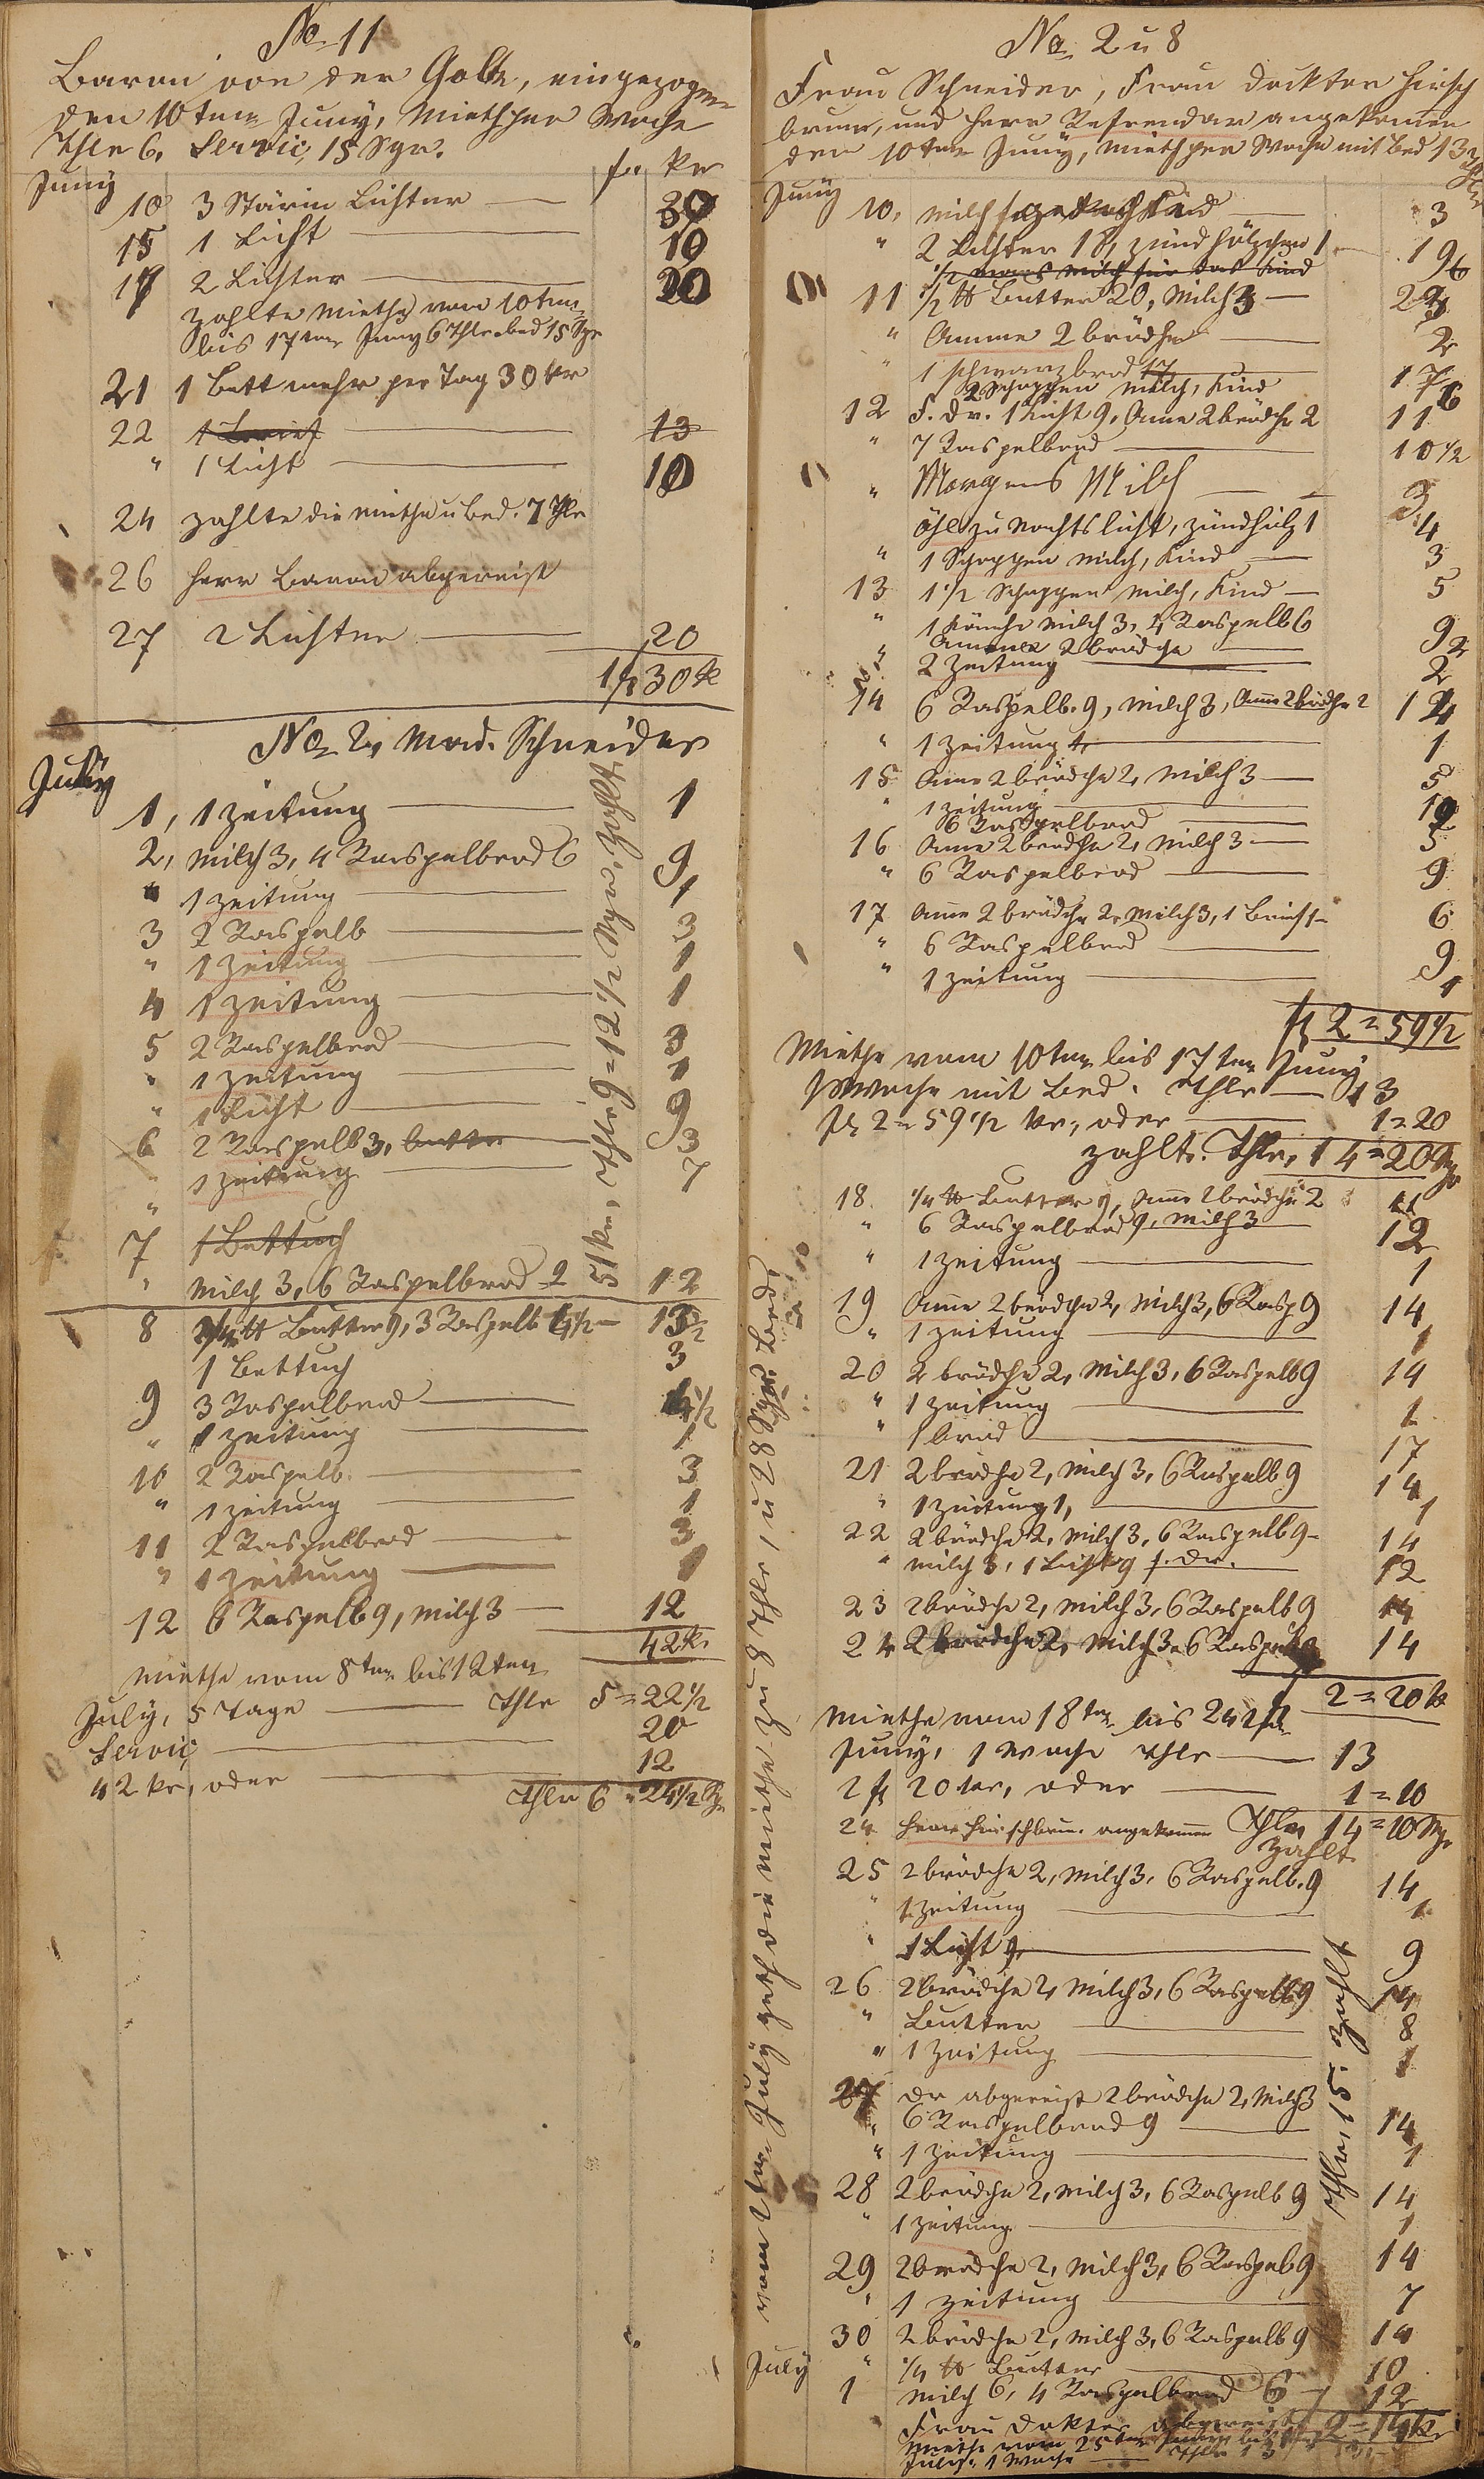 No 11
Baron von der Goltz, eingezogen
den 10ten Juny, Miethe per Woche
Thlr 6, Servic, 15 Sgr.
Juny
fr Kr
10 3 Stärin Lichter 30
15 1 Licht 10
17 2 Lichter 20
zahlte Miethe vom 10ten
bis 17ten Juny 6 Thlr Bed 15 Sgr
21 1 Bett mehr per Tag 30 Kr
22 1 Brief 13
" 1 Licht 10
24 zahlte die Miethe u Bed. 7 Thlr
26 Herr Baron abgereist
27 2 Lichter 20
1 fl 30 k
No 2, Mad. Schneider
July
1, 1 Zeitung 1
2, Milch 3, 4 Raspelbrod 6 9
" 1 Zeitung 1
3 2 Raspelb 3
" 1 Zeitung 1
4 1 Zeitung 1
5 2 Raspelbrod 3
" 1 Zeitung 1
" 1 Licht 9
6 2 Raspelb 3, Butter 3
" 1 Zeitung 7
7 1 Bettuch
" Milch 3, 6 Raspelbrod 9 12
51 Kr, Thlr 9 = 12 1/2 Sgr, zahlt
8 1/4 ℔ Butter 9, 3 Raspelb 4 1/2 13 1/2
1 Bettuch 3
9 3 Raspelbrod 4 1/2
" 1 Zeitung 1
10 2 Raspelb. 3
" 1 Zeitung 1
11 2 Raspelbrod 3
" 1 Zeitung 1
12 6 Raspelb 9, Milch 3 12
42 k.
Miethe vom 8ten bis 12ten
July, 5 Tage Thlr 5 = 22 1/2
Servic 20
42 kr, oder 12
Thlr 6 " 24 1/2 Sgr
No. 2 u 8
Frau Schneider, Frau Docktor Hirsch
brun, und Herr Refrendar angekomen
den 10ten Juny, Miethe per Woche mit Bed 13 Thlr
Juny
10, Milch Kind 3
" 2 Lichter 18, Zündhölzchen 1 19
1/2 Maas Milch für das Kind 6
11 1/2 ℔ Butter 20, Milch 3 23
" Amme 2 brödche 2
" 1 Schwarzbrod 17 17
2 Schoppen Milch, Kind 6
12 F. Dr. 1 Licht 9, Ame 2 brödche 2 11
" 7 Raspelbrod 10 1/2
" Morgens Milch 3
Öhl zu Nachtslicht, Zündhölz 1 4
" 1 Schoppen Milch, Kind 3
13 1 1/2 Schoppen Milch, Kind 5
" 1 Milch 3, 4 Raspelb 6 9
" Amme 2 brödche 2
" 2 Zeitung 2
14 6 Raspelb. 9, Milch 3, Ame 2 brödche 2 14
" 1 Zeitung 1
15 Ame 2 brödche 2, Milch 3 5
" 1 Zeitung
6 Raspelbrod 10
16 Ame 2 brödche 2, Milch 3 5
" 6 Raspelbrod 9
17 Ame 2 brödche 2, Milch 3, 1 Brief 1 6
" 6 Raspelbrod 9
" 1 Zeitung 1
fl 2 = 59 1/2
Miethe vom 10ten bis 17ten Juny
1 Woche mit Bed. Thlr 13
fl 2 = 59 1/2 Kr, oder 1 = 20
zahlt. Thlr, 14 = 20 Sgr
18. 1/4 ℔ Butter 9, Ame 2 brödche 2 11
" 6 Raspelbrod 9, Milch 3 12
" 1 Zeitung 1
19 Ame 2 brödche 2, Milch 3, 6 Rasp 9 14
" 1 Zeitung 1
20 2 brödche 2, Milch 3, 6 Raspelb 9 14
" 1 Zeitung 1
" 1 brod 17
21 2 brödche 2, Milch 3, 6 Raspelb 9 14
" 1 Zeitung 1, 1
22 2 brödche 2, Milch 3, 6 Raspelb 9 14
" Milch 3, 1 Licht 9 f. Dr. 12
23 2 brödche 2, Milch 3, 6 Raspelb 9 14
24 2 brödche 2, Milch 3, 6 Raspelb 14
2 = 20 k
Miethe vom 18ten bis 24ten
Juny, 1 Woche Thlr 13
2 fl 20 kr, oder 1 = 10
24 Herr Hirschbrun. angekommen Thlr 14 = 10 Sgr
zahlt
25 2 brödche 2, Milch 3, 6 Raspelb. 9 14
" 1 Zeitung 1
" 1 Licht 9 9
26 2 brödche 2, Milch 3, 6 Raspelb 9 14
" Butter 8
" 1 Zeitung 1
27 Dr abgereist 2 brödche 2, Milch 3
" 6 Raspelbrod 9 14
" 1 Zeitung 1
28 2 brödche 2, Milch 3, 6 Raspelb 9 14
" 1 Zeitung 1
29 2 brödche 2, Milch 3, 6 Raspelb 9 14
" 1 Zeitung 7
30 2 brödche 2, Milch 3, 6 Raspelb 9 14
" 1/4 ℔ Butter 10
July
1 Milch 6, 4 Raspelbrod 6 12
Frau Doktor abgereist 2 = 14 k
Miethe vom 25ten
July, 1 Woche Thlr 13
Thlr, 15. zahlt
vom 2ten July geth die Miethe zu 8 Thlr, u 28 Sgr. Bed.